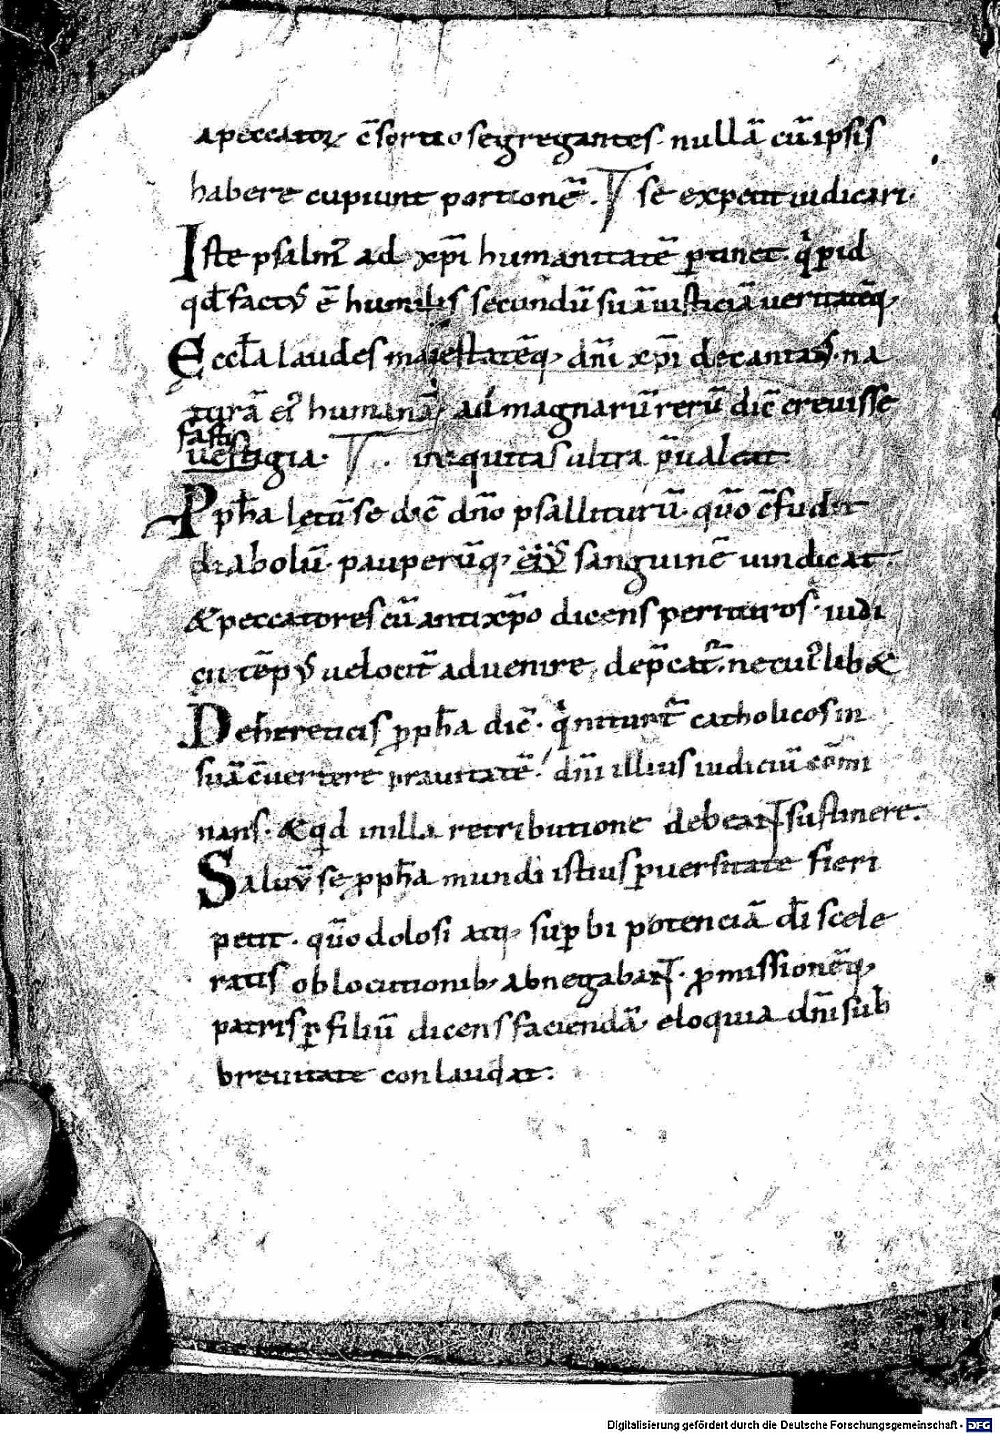 apeccatoꝝ c̄sortio segregantes· nullā cū ipsis
habere cupiunt portionē. se expetit iudicari·
Iste psalm̄ ad xp̄i humanitatē ꝑtinet· ꝑid
qd̄ factus ē humilis secundū suā iusticiā ueritatēq;
Eccl̄a laudes majestatēq; dn̄i xp̄i decantans· na
turā ei humanā, ad magnarū rerū dic̄ creuisse
fasti
uestigia· iniquitas ultra p̄ualeat·
Pph̄a letū se dic̄ dn̄o psalliturū· quō c̄fudit
diabolū· pauperūq; eius sanguinē uindicat·
&peccatores cū antixp̄o dicens perituros· iudi
cii tēpus uelocit̄ aduenire, dep̄cat̄· nec lib&
De hereticis ꝓph̄a dic̄· qi nitunt̄ catholicos in
suā c̄uertere prauitatē· dn̄i illius iudiciū com̄i
nans· &qd in illa retributione debeant sustinere·
Saluū se ꝓph̄a mundi istius ꝑuersitate fieri
petit· quō dolosi atq; suꝑbi potenciā dī scele
ratis oblocutionib; abnegabant· ꝓmissionēq;
patris ꝑ filiū dicens faciendā· eloquia dn̄i sub
breuitate conlaudat·
Digitalisierung gefördert durch die Deutsche Forschungsgemeinschaft - DFG